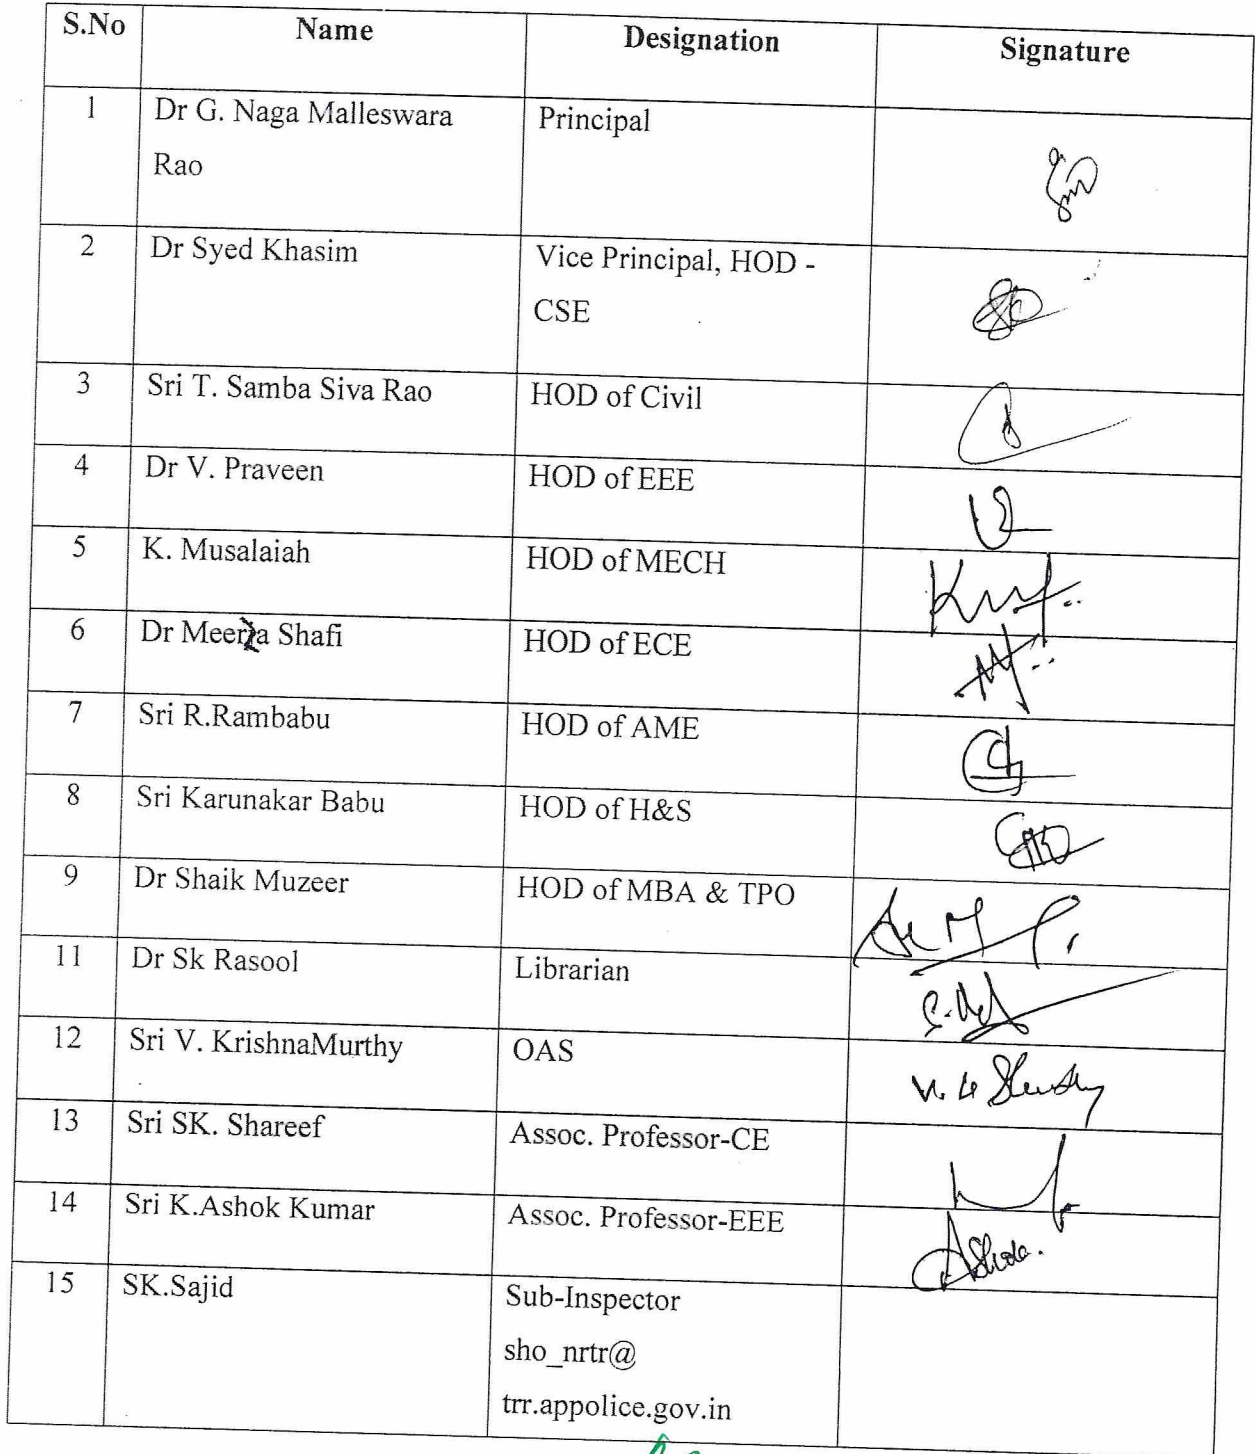 S.No Name Designation Signature
1 Dr G. Naga Malleswara Principal
Rao
2 Dr Syed Khasim Vice Principal, HOD -
CSE
3 Sri T. Samba Siva Rao HOD of Civil
4 Dr V. Praveen HOD of EEE
5 K. Musalaiah HOD of MECH
6 Dr Meerza Shafi HOD of ECE
7 Sri R.Rambabu HOD of AME
8 Sri Karunakar Babu HOD of H&S
9 Dr Shaik Muzeer HOD of MBA & TPO
11 Dr Sk Rasool Librarian
12 Sri V. KrishnaMurthy OAS
13 Sri SK. Shareef Assoc. Professor-CE
14 Sri K.Ashok Kumar Assoc. Professor-EEE
15 SK.Sajid Sub-Inspector
sho_nrtr@
trr.appolice.gov.in